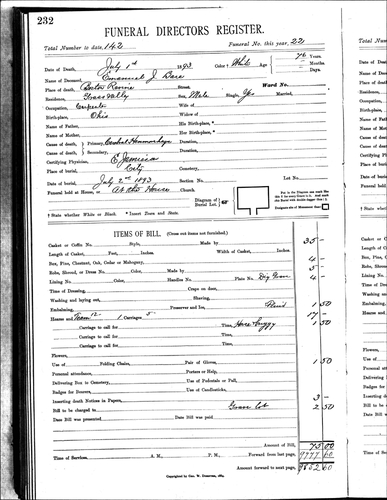 232
FUNERAL DIRECTORS REGISTER.
Total Number to date, 142 Funeral No. this year, 22
Date of Death, July 1st 1893 Color † White Age 76 Years.
Months.
Days.
Name of Deceased, Emanuel J.
Place of death, Street, Ward No.
Residence, Grass Valley Sex, Male Single, Yes Married,
Occupation, Carpenter Wife of
Birthplace, Ohio Widow of
Name of Father, His Birthplace, *
Name of Mother, Her Birthplace, *
Cause of death, Primary, Cerebral Hemorrhage Duration,
Cause of death, Secondary, Duration,
Certifying Physician, E.
Place of burial, City
Date of burial, July 2nd 1893 Section No. Lot No.
Funeral held at House, or At the House Church.
Diagram of Burial Lot.
† State whether White or Black. * Insert Town and State.
ITEMS OF BILL. (Cross out items not furnished.)
Casket or Coffin No. Style, Made by 35 -
Length of Casket, Feet, Inches. Width of Casket, Inches.
Box, Pine, Chestnut, Oak, Cedar or Mahogany, 4 -
Robe, Shroud, or Dress No. Color, Made by 5 -
Lining No. Color, Handles No. Plate No. Dig Grave 4 -
Time of Dressing, Crape on door,
Washing and laying out, Shaving,
Embalming, Preserver and Ice, 1 50
Hearse and Team 12 - 1 Carriages 5 - 17 -
Carriage to call for Time, Horse Buggy 1 50
Carriage to call for Time,
Carriage to call for Time,
Flowers,
Use of Folding Chairs, Pair of Gloves, 1 50
Personal attendance, Porters or Help,
Delivering Box to Cemetery, Use of Pedestals or Pall,
Badges for Bearers, Use of Candlesticks,
Inserting death Notices in Papers, 3 -
Bill to be charged to Grave lot 2 50
Date Bill was presented Date Bill was paid
Amount of Bill, 75 00
Time of Services, A. M., P. M. Forward from last page, 9777 60
Amount forward to next page, 9852 60